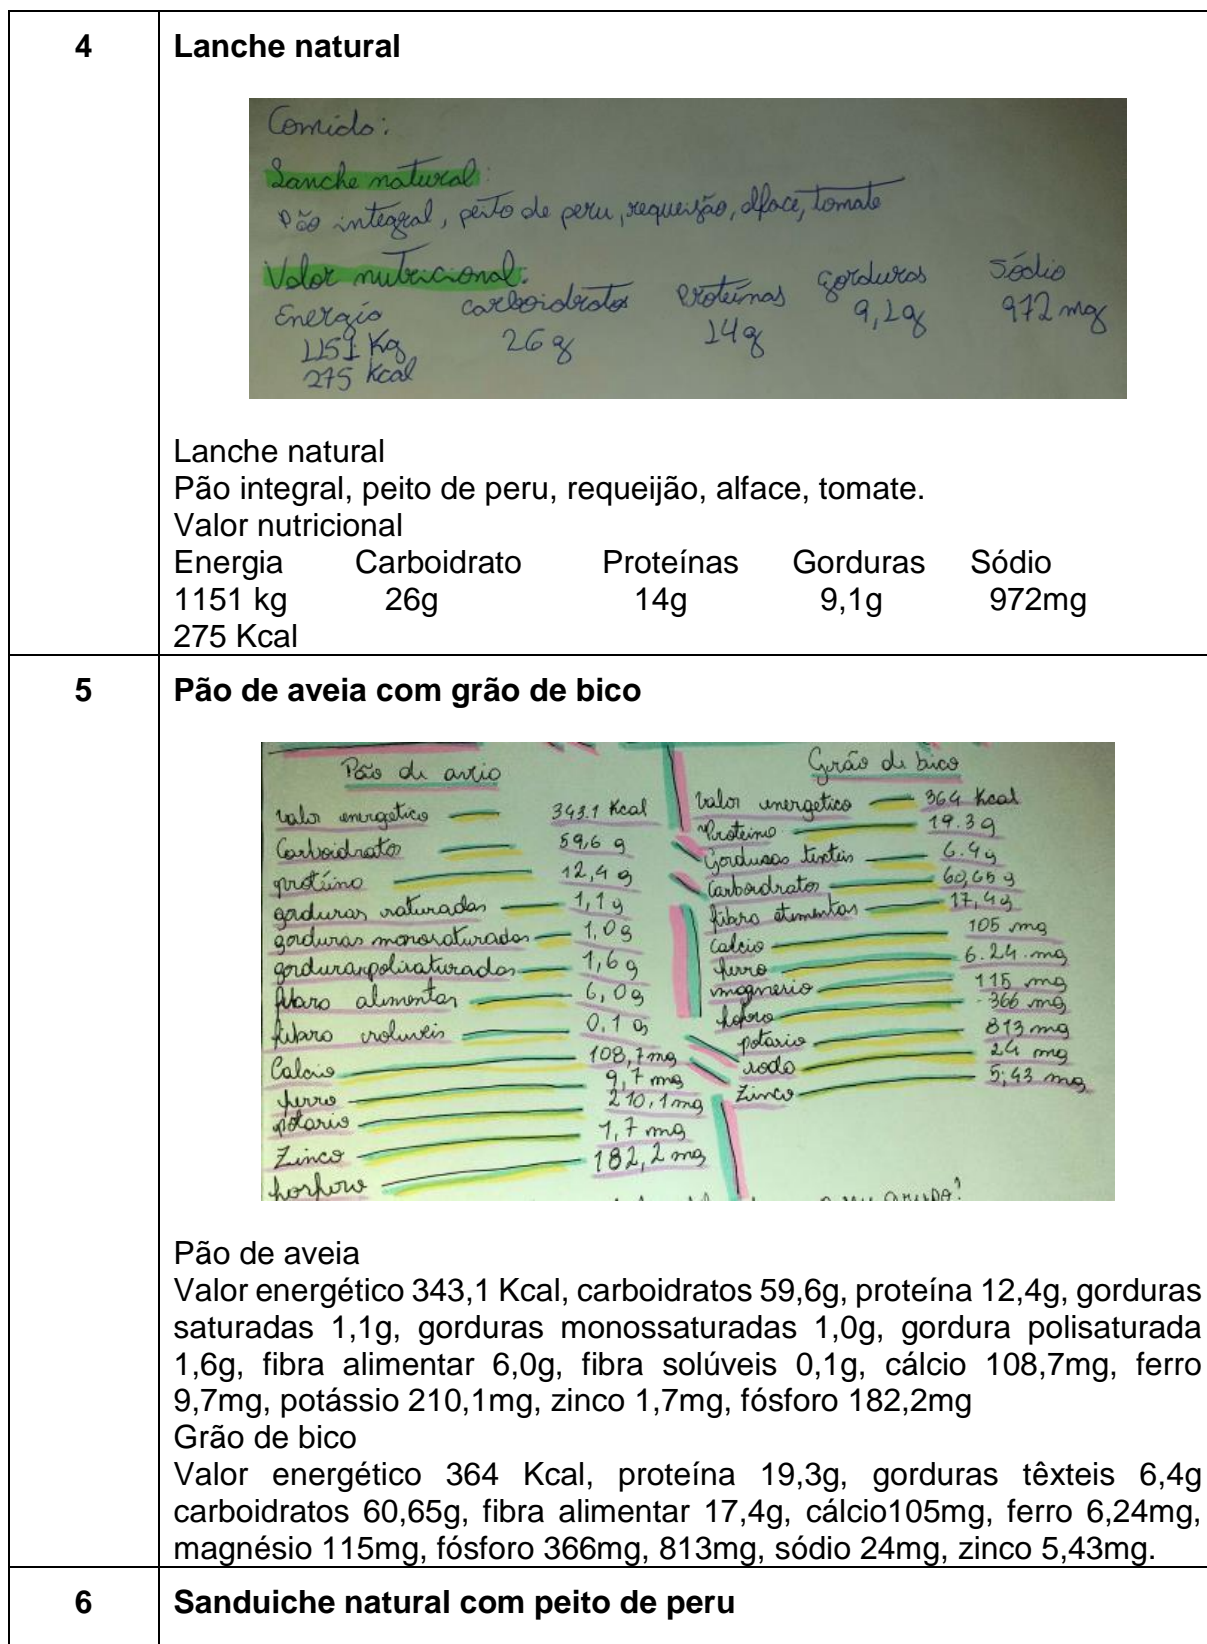 4 Lanche natural
Comida:
Lanche natural:
Pão integral, peito de peru, requeijão, alface, tomate
Valor nutricional:
Energia carboidratos Proteínas gorduras Sódio
1151 Kg 26 g 14g 9,1g 972 mg
275 Kcal
Lanche natural
Pão integral, peito de peru, requeijão, alface, tomate.
Valor nutricional
Energia Carboidrato Proteínas Gorduras Sódio
1151 kg 26g 14g 9,1g 972mg
275 Kcal
5 Pão de aveia com grão de bico
Pão de aveia
valor energetico 343.1 Kcal
Carboidratos 59,6 g
proteína 12,4 g
gorduras saturadas 1,1 g
gorduras monosaturadas 1,0 g
gorduras polisaturadas 1,6 g
fibra alimentar 6,0 g
fibra soluveis 0.1 g
Calcio 108,7 mg
ferro 9,7 mg
potasio 210,1 mg
Zinco 1,7 mg
fosforo 182,2 mg
Grão de bico
Valor energetico 364 Kcal
Proteina 19.3 g
Gorduras texteis 6.4 g
Carboidratos 60,65 g
fibra 17,4 g
Calcio 105 mg
ferro 6.24 mg
magnesio 115 mg
fosfro 366 mg
potasio 813 mg
sodo 24 mg
Zinco 5,43 mg
grupo?
Pão de aveia
Valor energético 343,1 Kcal, carboidratos 59,6g, proteína 12,4g, gorduras
saturadas 1,1g, gorduras monossaturadas 1,0g, gordura polisaturada
1,6g, fibra alimentar 6,0g, fibra solúveis 0,1g, cálcio 108,7mg, ferro
9,7mg, potássio 210,1mg, zinco 1,7mg, fósforo 182,2mg
Grão de bico
Valor energético 364 Kcal, proteína 19,3g, gorduras têxteis 6,4g
carboidratos 60,65g, fibra alimentar 17,4g, cálcio105mg, ferro 6,24mg,
magnésio 115mg, fósforo 366mg, 813mg, sódio 24mg, zinco 5,43mg.
6 Sanduiche natural com peito de peru